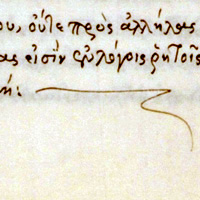 ου, οὔτε πρὸς ἀλλήλας
ας εἰσὶν εὐλόγοις ῥητοῖς
ή: